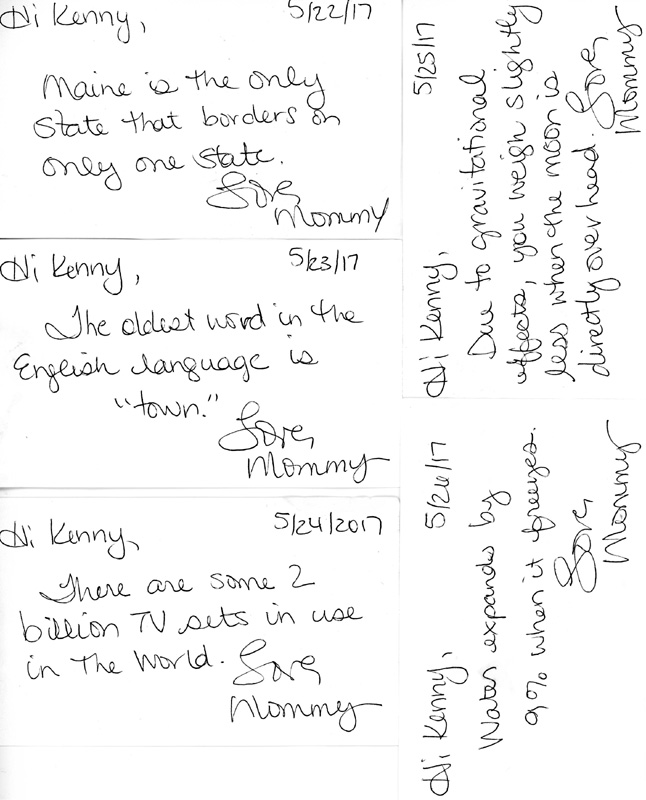 Hi Kenny,
5/22/17
Maine is the only
state that borders on
only one state.
Love,
Mommy
Hi Kenny,
5/23/17
The oldest word in the
English language is
"town."
Love,
Mommy
Hi Kenny,
5/24/2017
There are some 2
billion TV sets in use
in the world. Love,
Mommy
Hi Kenny,
5/25/17
Due to gravitational
effects, you weigh slightly
less when the moon is
directly over head. Love,
Mommy
Hi Kenny,
5/26/17
Water expands by
9% when it freezes.
Love,
Mommy